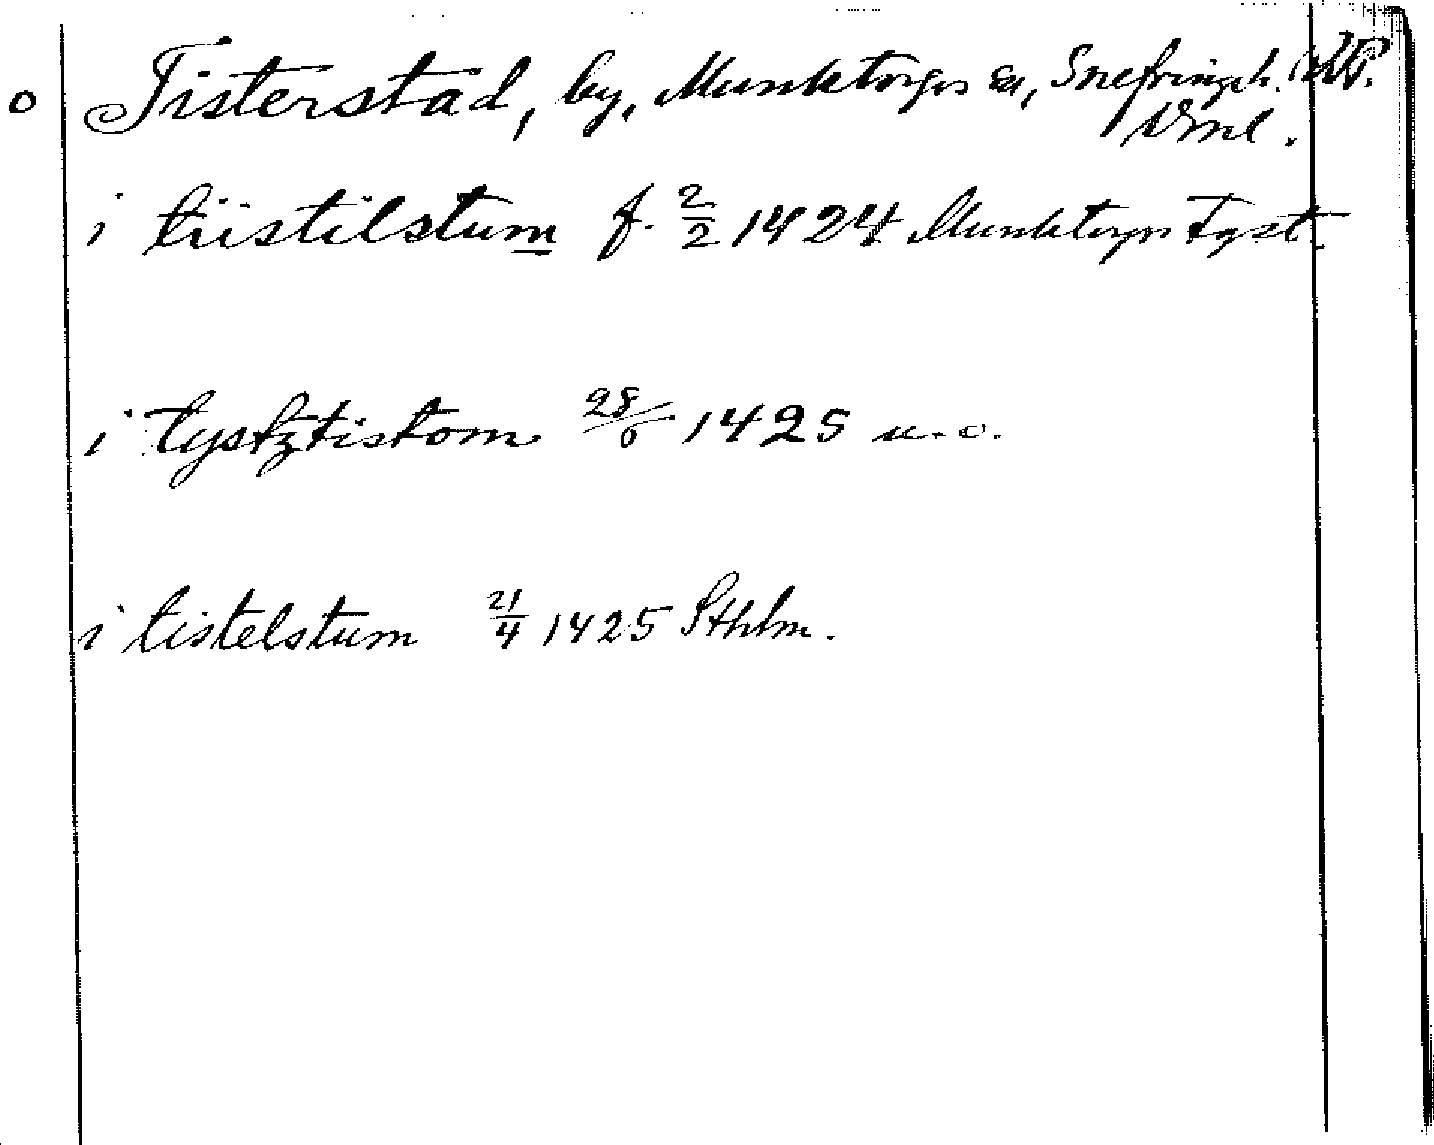 o Tisterstad, by, Munktorps sn, Snefringe h.
Vml.
i tiistilstum f. 2/2 1424 Munktorps Tgst.
i tystztistom 28/6 1425 u.o.
i tistelstum 21/4 1425 Sthlm.